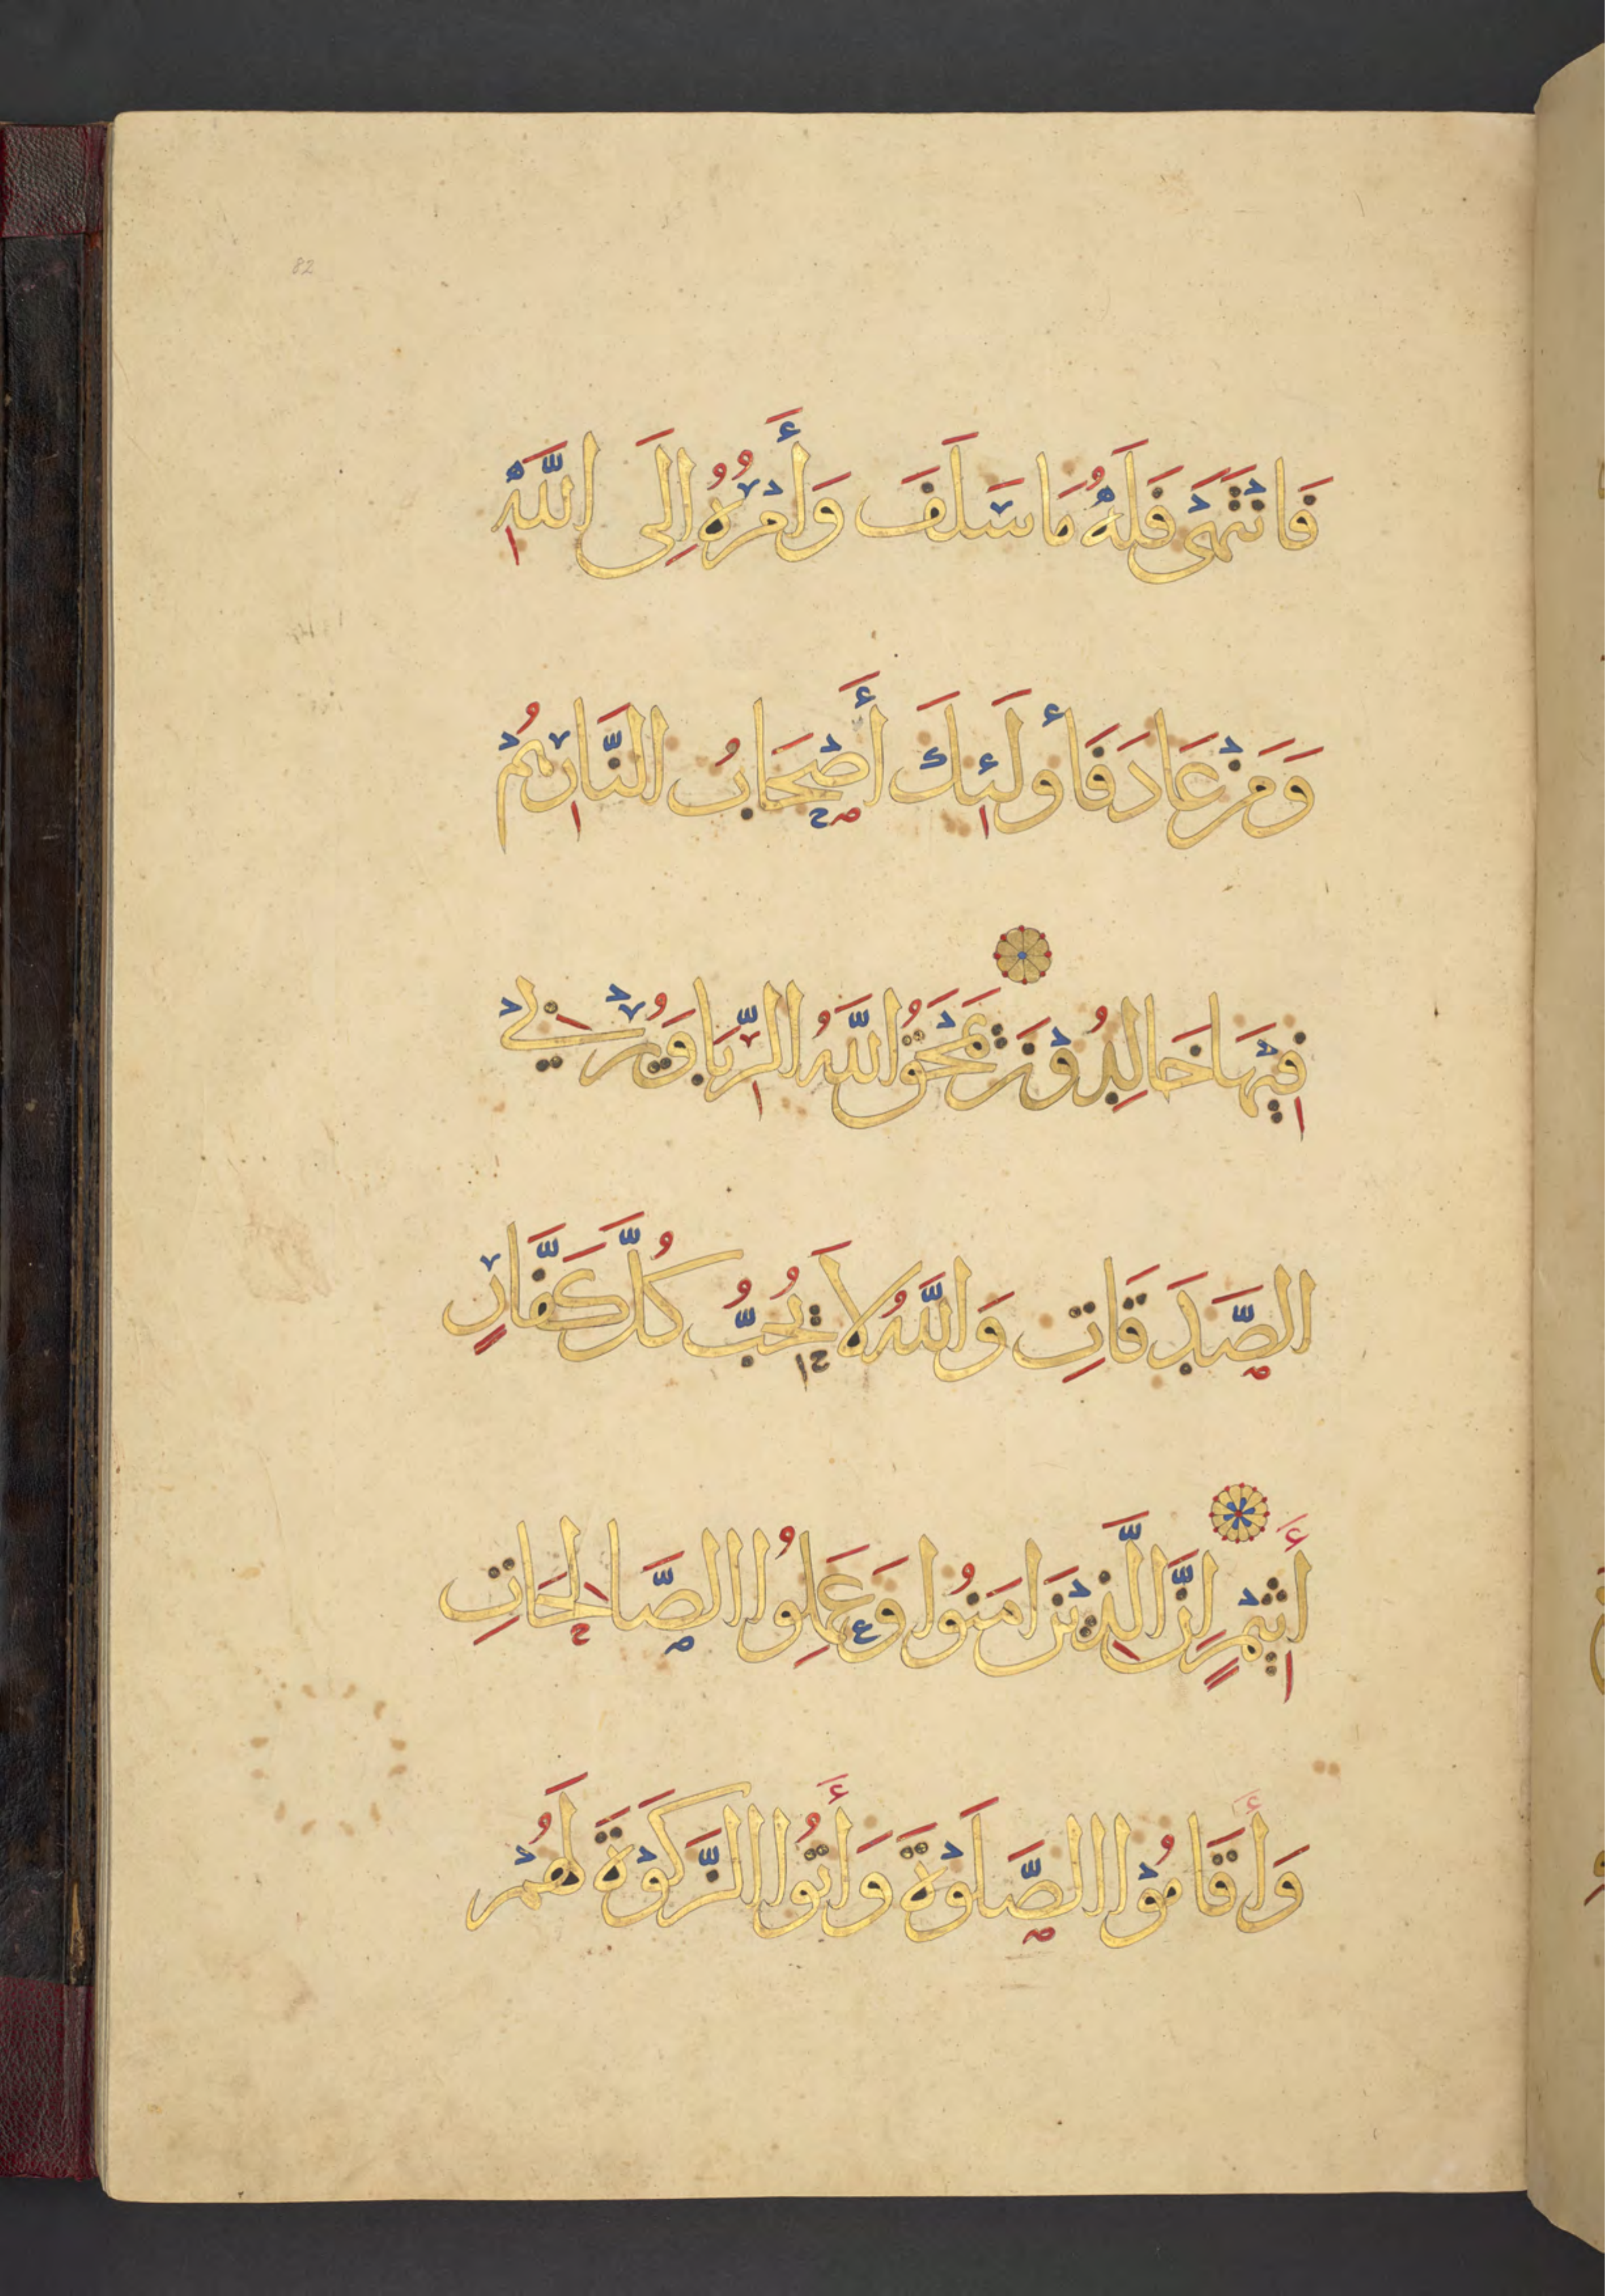 82
فَانْتَهَىٰ فَلَهُ مَا سَلَفَ وَأَمْرُهُ إِلَى اللَّهِ
وَمَنْ عَادَ فَأُولَئِكَ أَصْحَابُ النَّارِ هُمْ
فِيهَا خَالِدُونَ يَمْحَقُ اللَّهُ الرِّبَا وَيُرْبِي
الصَّدَقَاتِ وَاللَّهُ لَا يُحِبُّ كُلَّ كَفَّارٍ
أَثِيمٍ إِنَّ الَّذِينَ امَنُوا وَعَمِلُوا الصَّالِحَاتِ
وَأَقَامُوا الصَّلَوةَ وَأَتَوُا الزَّكَوةَ لَهُمْ